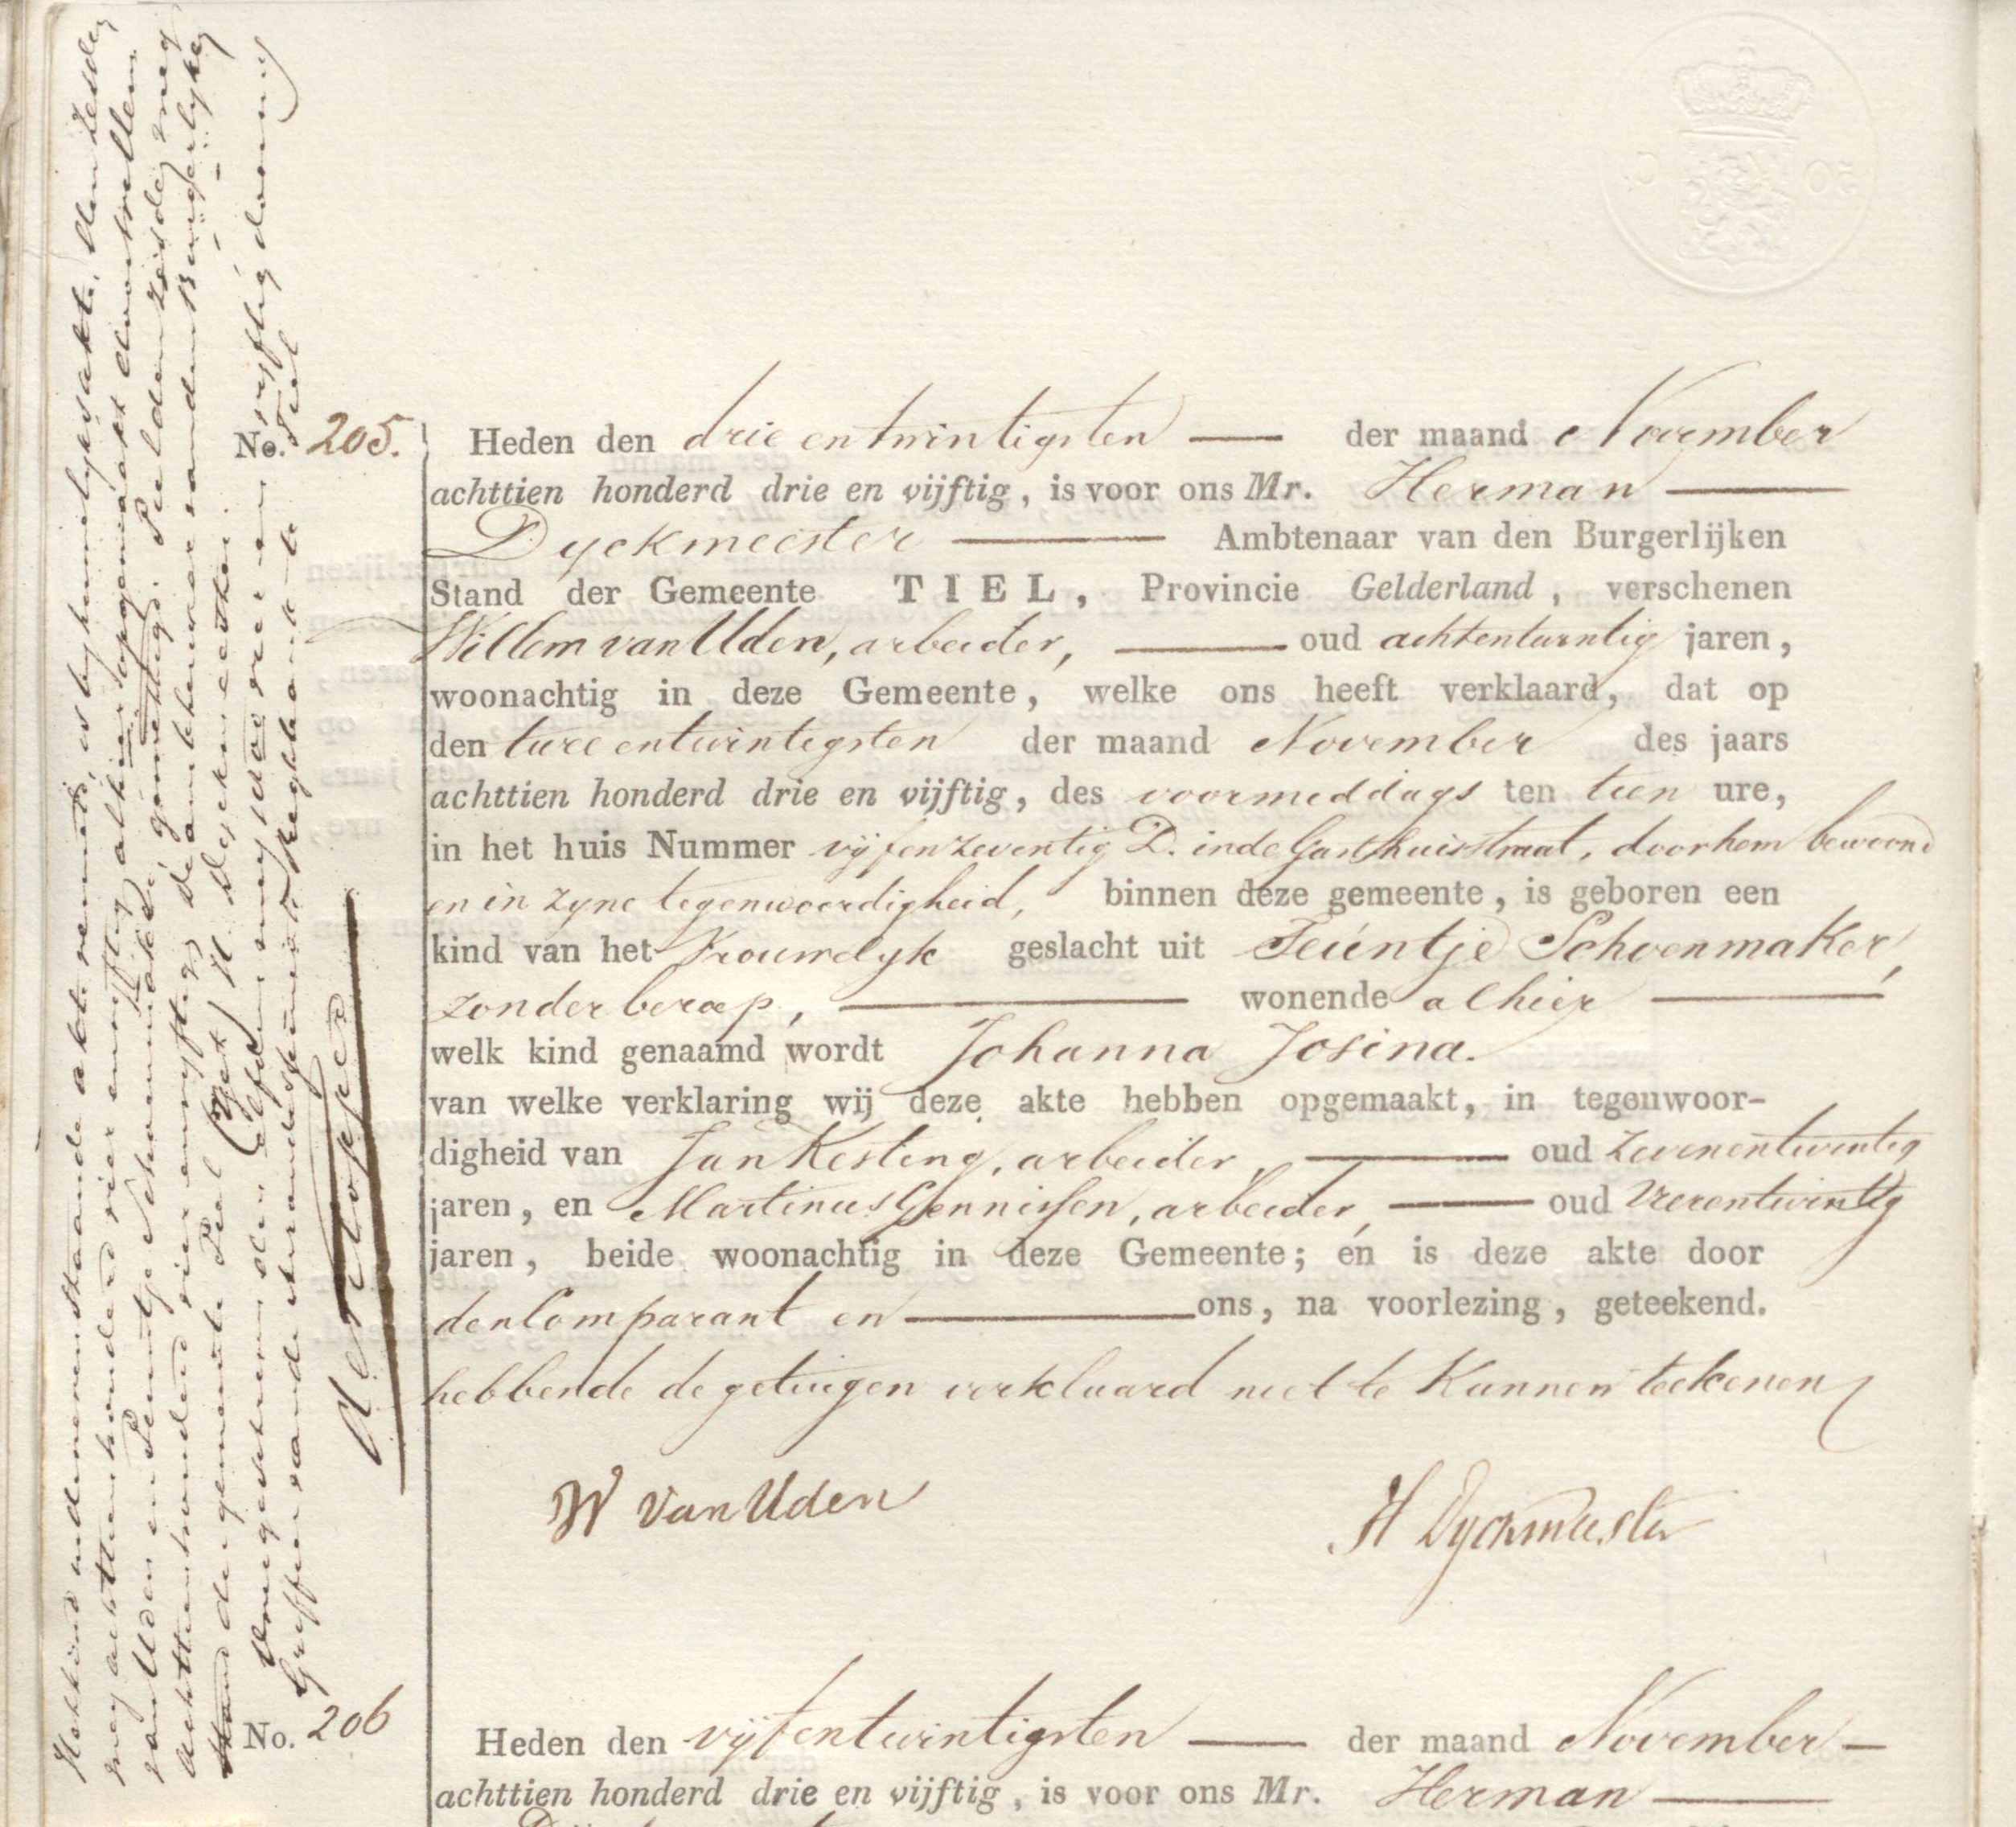 No. 205.
Heden den drie en twintigsten der maand November
achttien honderd drie en vijftig, is voor ons Mr. Herman
Dyckmeester Ambtenaar van den Burgerlijken
Stand der Gemeente TIEL, Provincie Gelderland, verschenen
Willem van Uden, arbeider, oud achtentwintig jaren,
woonachtig in deze Gemeente, welke ons heeft verklaard, dat op
den twee entwintigsten der maand November des jaars
achttien honderd drie en vijftig, des voormiddags ten tien ure,
in het huis Nummer vijfenzeventig D. inde Gasthuisstraat, door hem bewoond
en in zyne tegenwoordigheid, binnen deze gemeente, is geboren een
kind van het Vrouwelyk geslacht uit Teuntje Schoenmaker,
zonder beroep, wonende alhier
welk kind genaamd wordt Johanna Josina.
van welke verklaring wij deze akte hebben opgemaakt, in tegenwoor-
digheid van Jan Kesting, arbeider, oud zevenentwintig
jaren, en Martinus Gennissen, arbeider, oud vierentwintig
jaren, beide woonachtig in deze Gemeente; en is deze akte door
den Comparant en ons, na voorlezing, geteekend.
hebbende de getuigen verklaard niet te kunnen teekenen
W van Uden
H Dyckmeester
Het kind in de nevenstaande akte vermeld, is by huwelyksakte, den zesden
mey achttienhonderd vier en vyftig alhier opgemaakt, tusschen Willem
van Uden en Teuntje Schoenmaker, gewettigd. Tiel den zesden mey
achttienhonderd vier en vyftig, de ambtenaar van den Burgerlyken
Stand der gemeente Tiel (Get) H Dyckmeester.
Griffier van de Arrondissements Regtbank te Tiel
No. 206
Heden den vijfentwintigsten der maand November
achttien honderd drie en vijftig, is voor ons Mr. Herman
50 C.